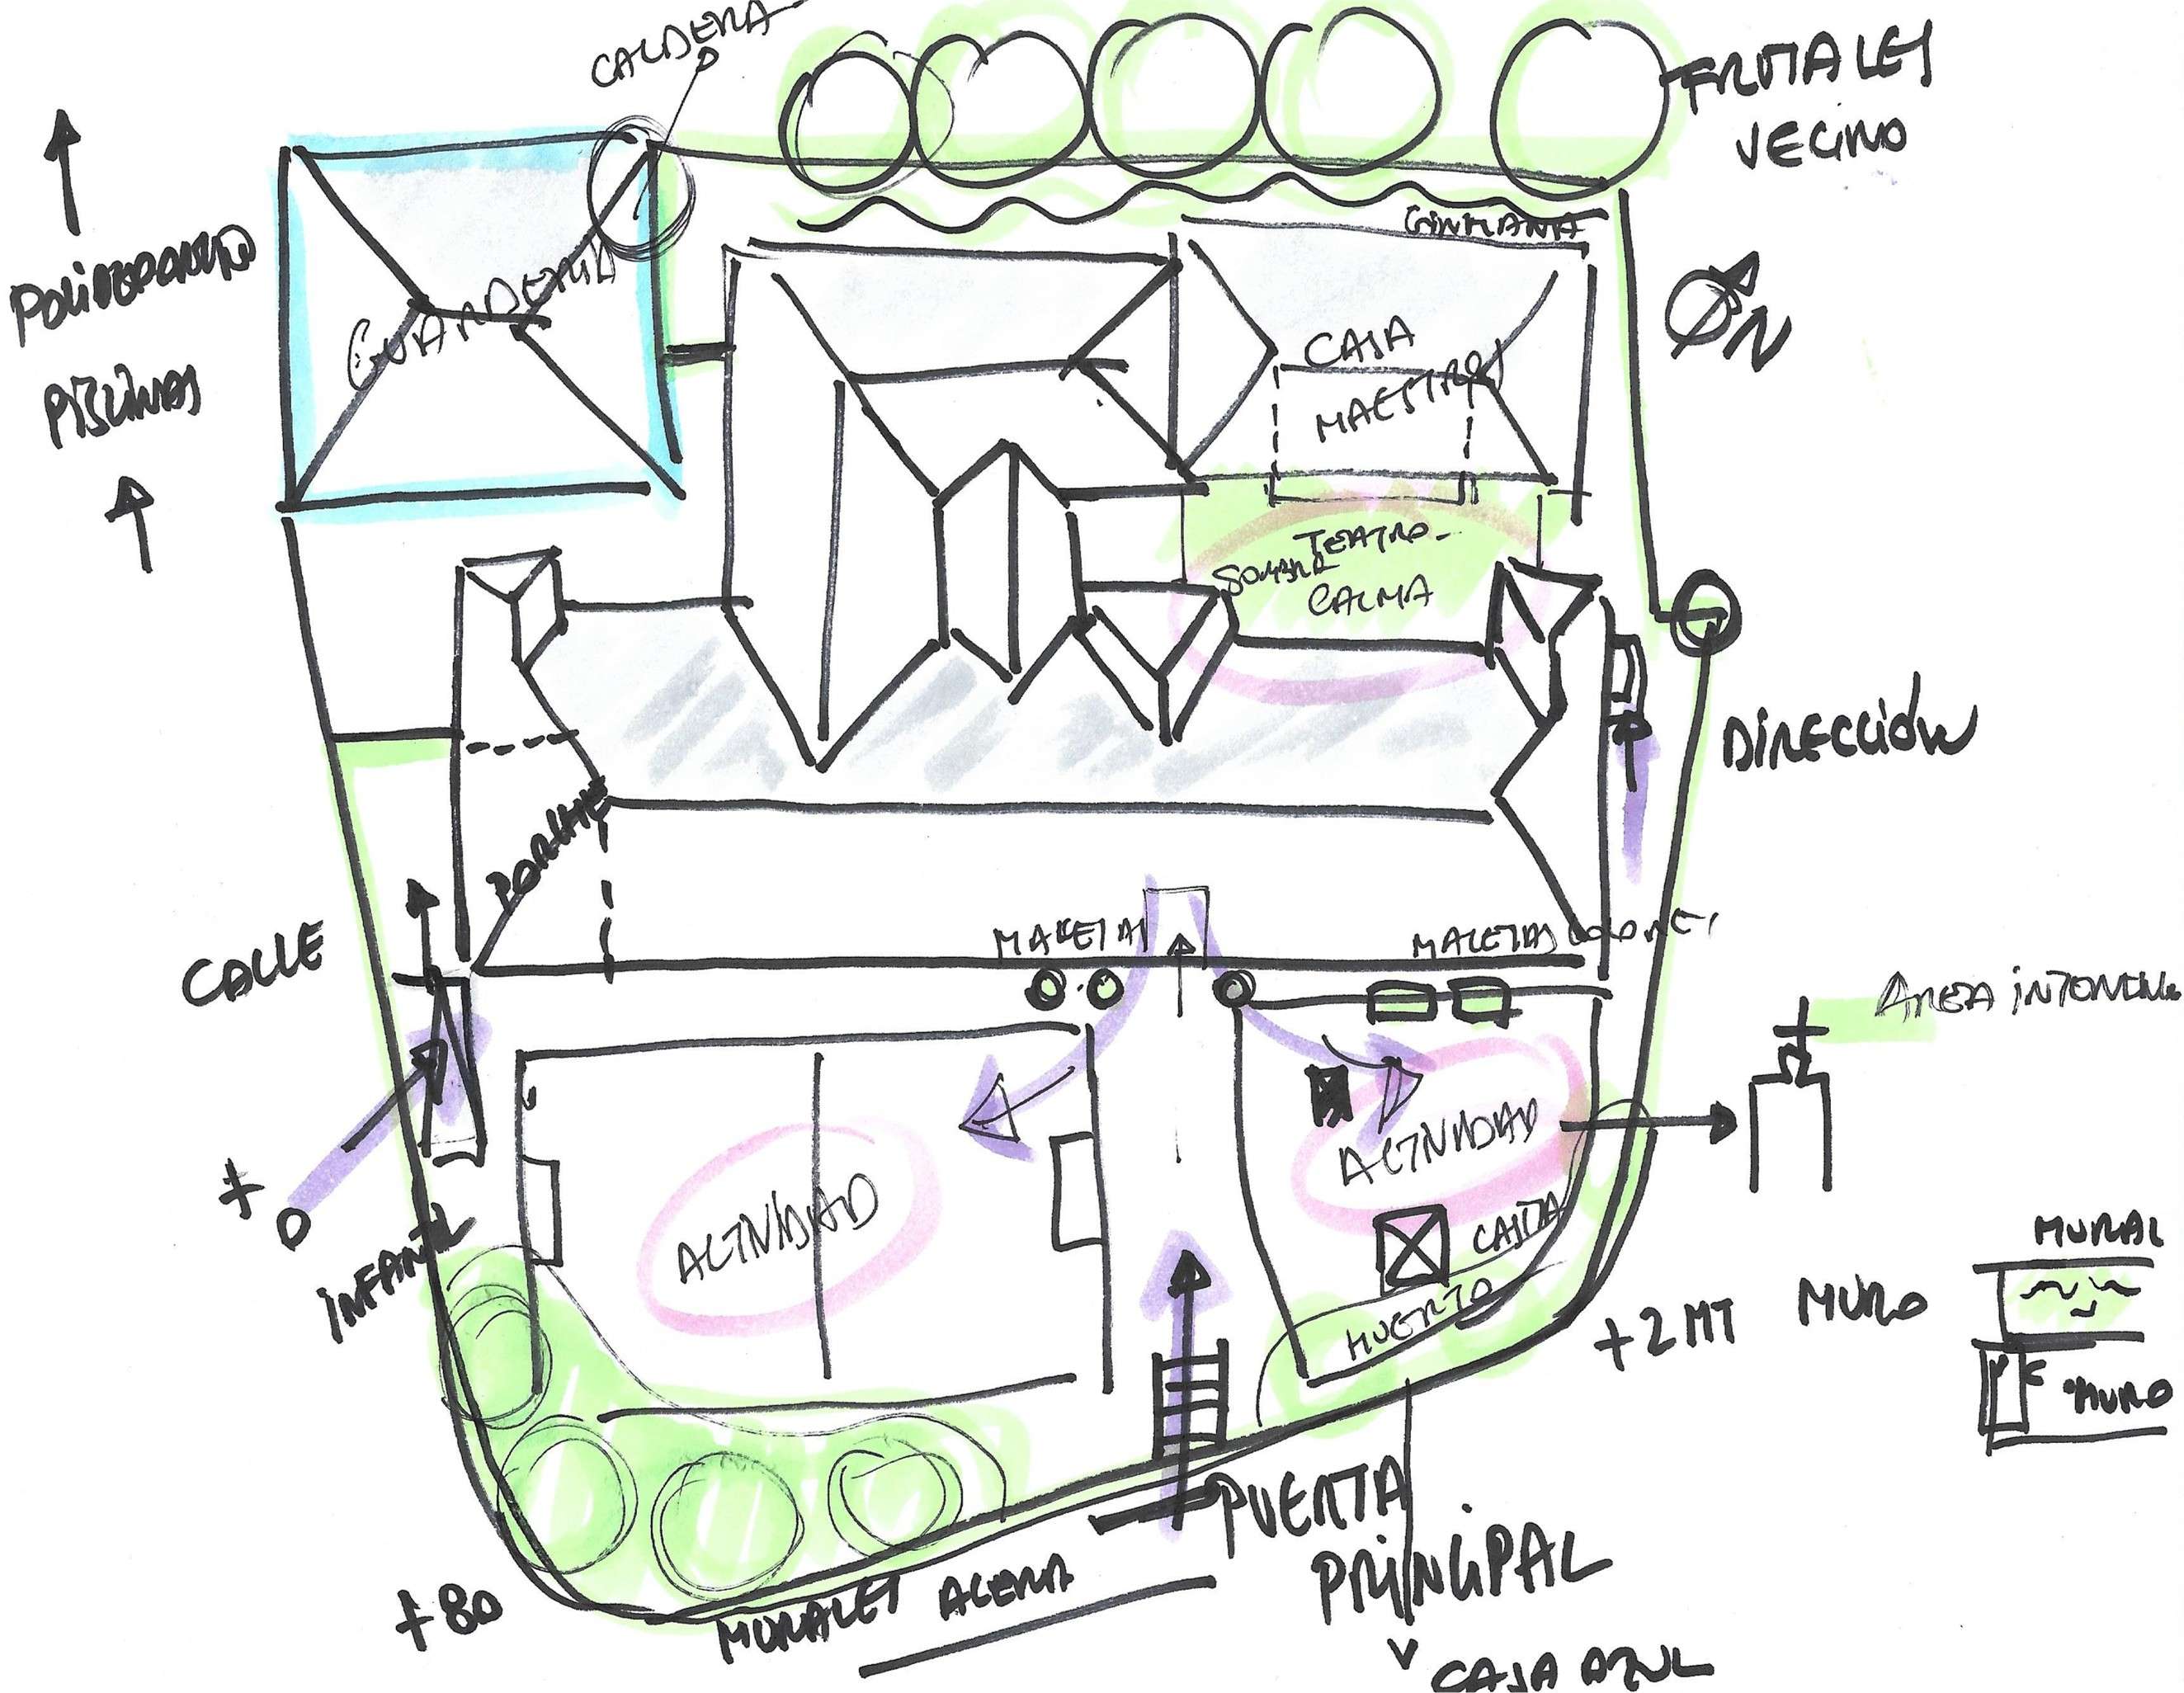 CALDERA
FRUTALES
VECINO
POLIDEPORTIVO
PISCINAS
GUARDERIA
GINKANA
N
CASA
MAESTROS
TEATRO
SOMBRA
CALMA
DIRECCIÓN
PORCHE
CALLE
MALETAS
MALETAS COLORES
AREA INTONCIL
ACTIVIDAD
ACTIVIDAD
+0
INFANTIL
CASITA
HUERTO
+2 MT
MURO
MURAL
MURO
PUERTA
PRINCIPAL
+80
MURALES ACERA
CASA AZUL